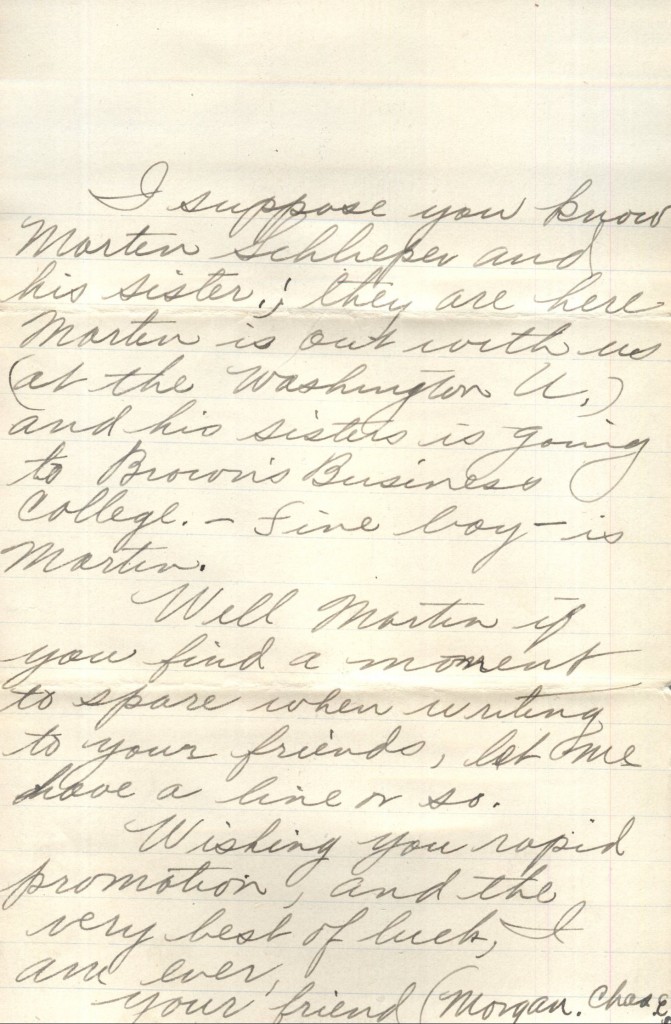 I suppose you know
Martin Schlieper and
his sister; they are here
Martin is out with us
(at the Washington U.)
and his sisters is going
to Brown's Business
College. – Fine boy – is
Martin.
Well Martin if
you find a moment
to spare when writing
to your friends, let me
have a line or so.
Wishing you rapid
promotion, and the
very best of luck, I
am ever,
your friend (Morgan. Chas. E.